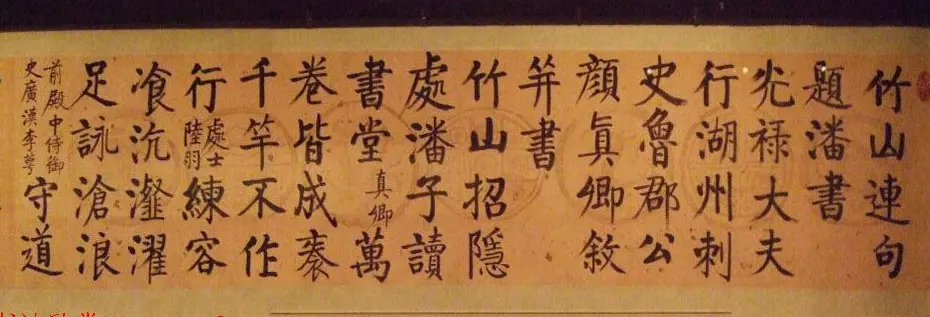 竹山連句
題潘書
光禄大夫
行湖州刺
史魯郡公
顔真卿敘
并書
竹山招隱
處潘子讀
書堂真卿萬
卷皆成袠
千竿不作
行處士陸羽練容
飡沆瀣濯
足詠滄浪
前殿中侍御史廣漢李萼守道